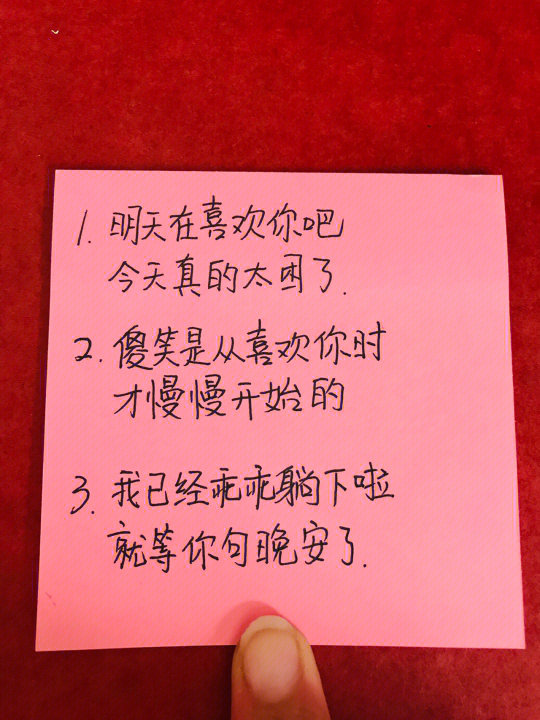 1. 明天在喜欢你吧
今天真的太困了.
2. 傻笑是从喜欢你时
才慢慢开始的
3. 我已经乖乖躺下啦
就等你句晚安了.